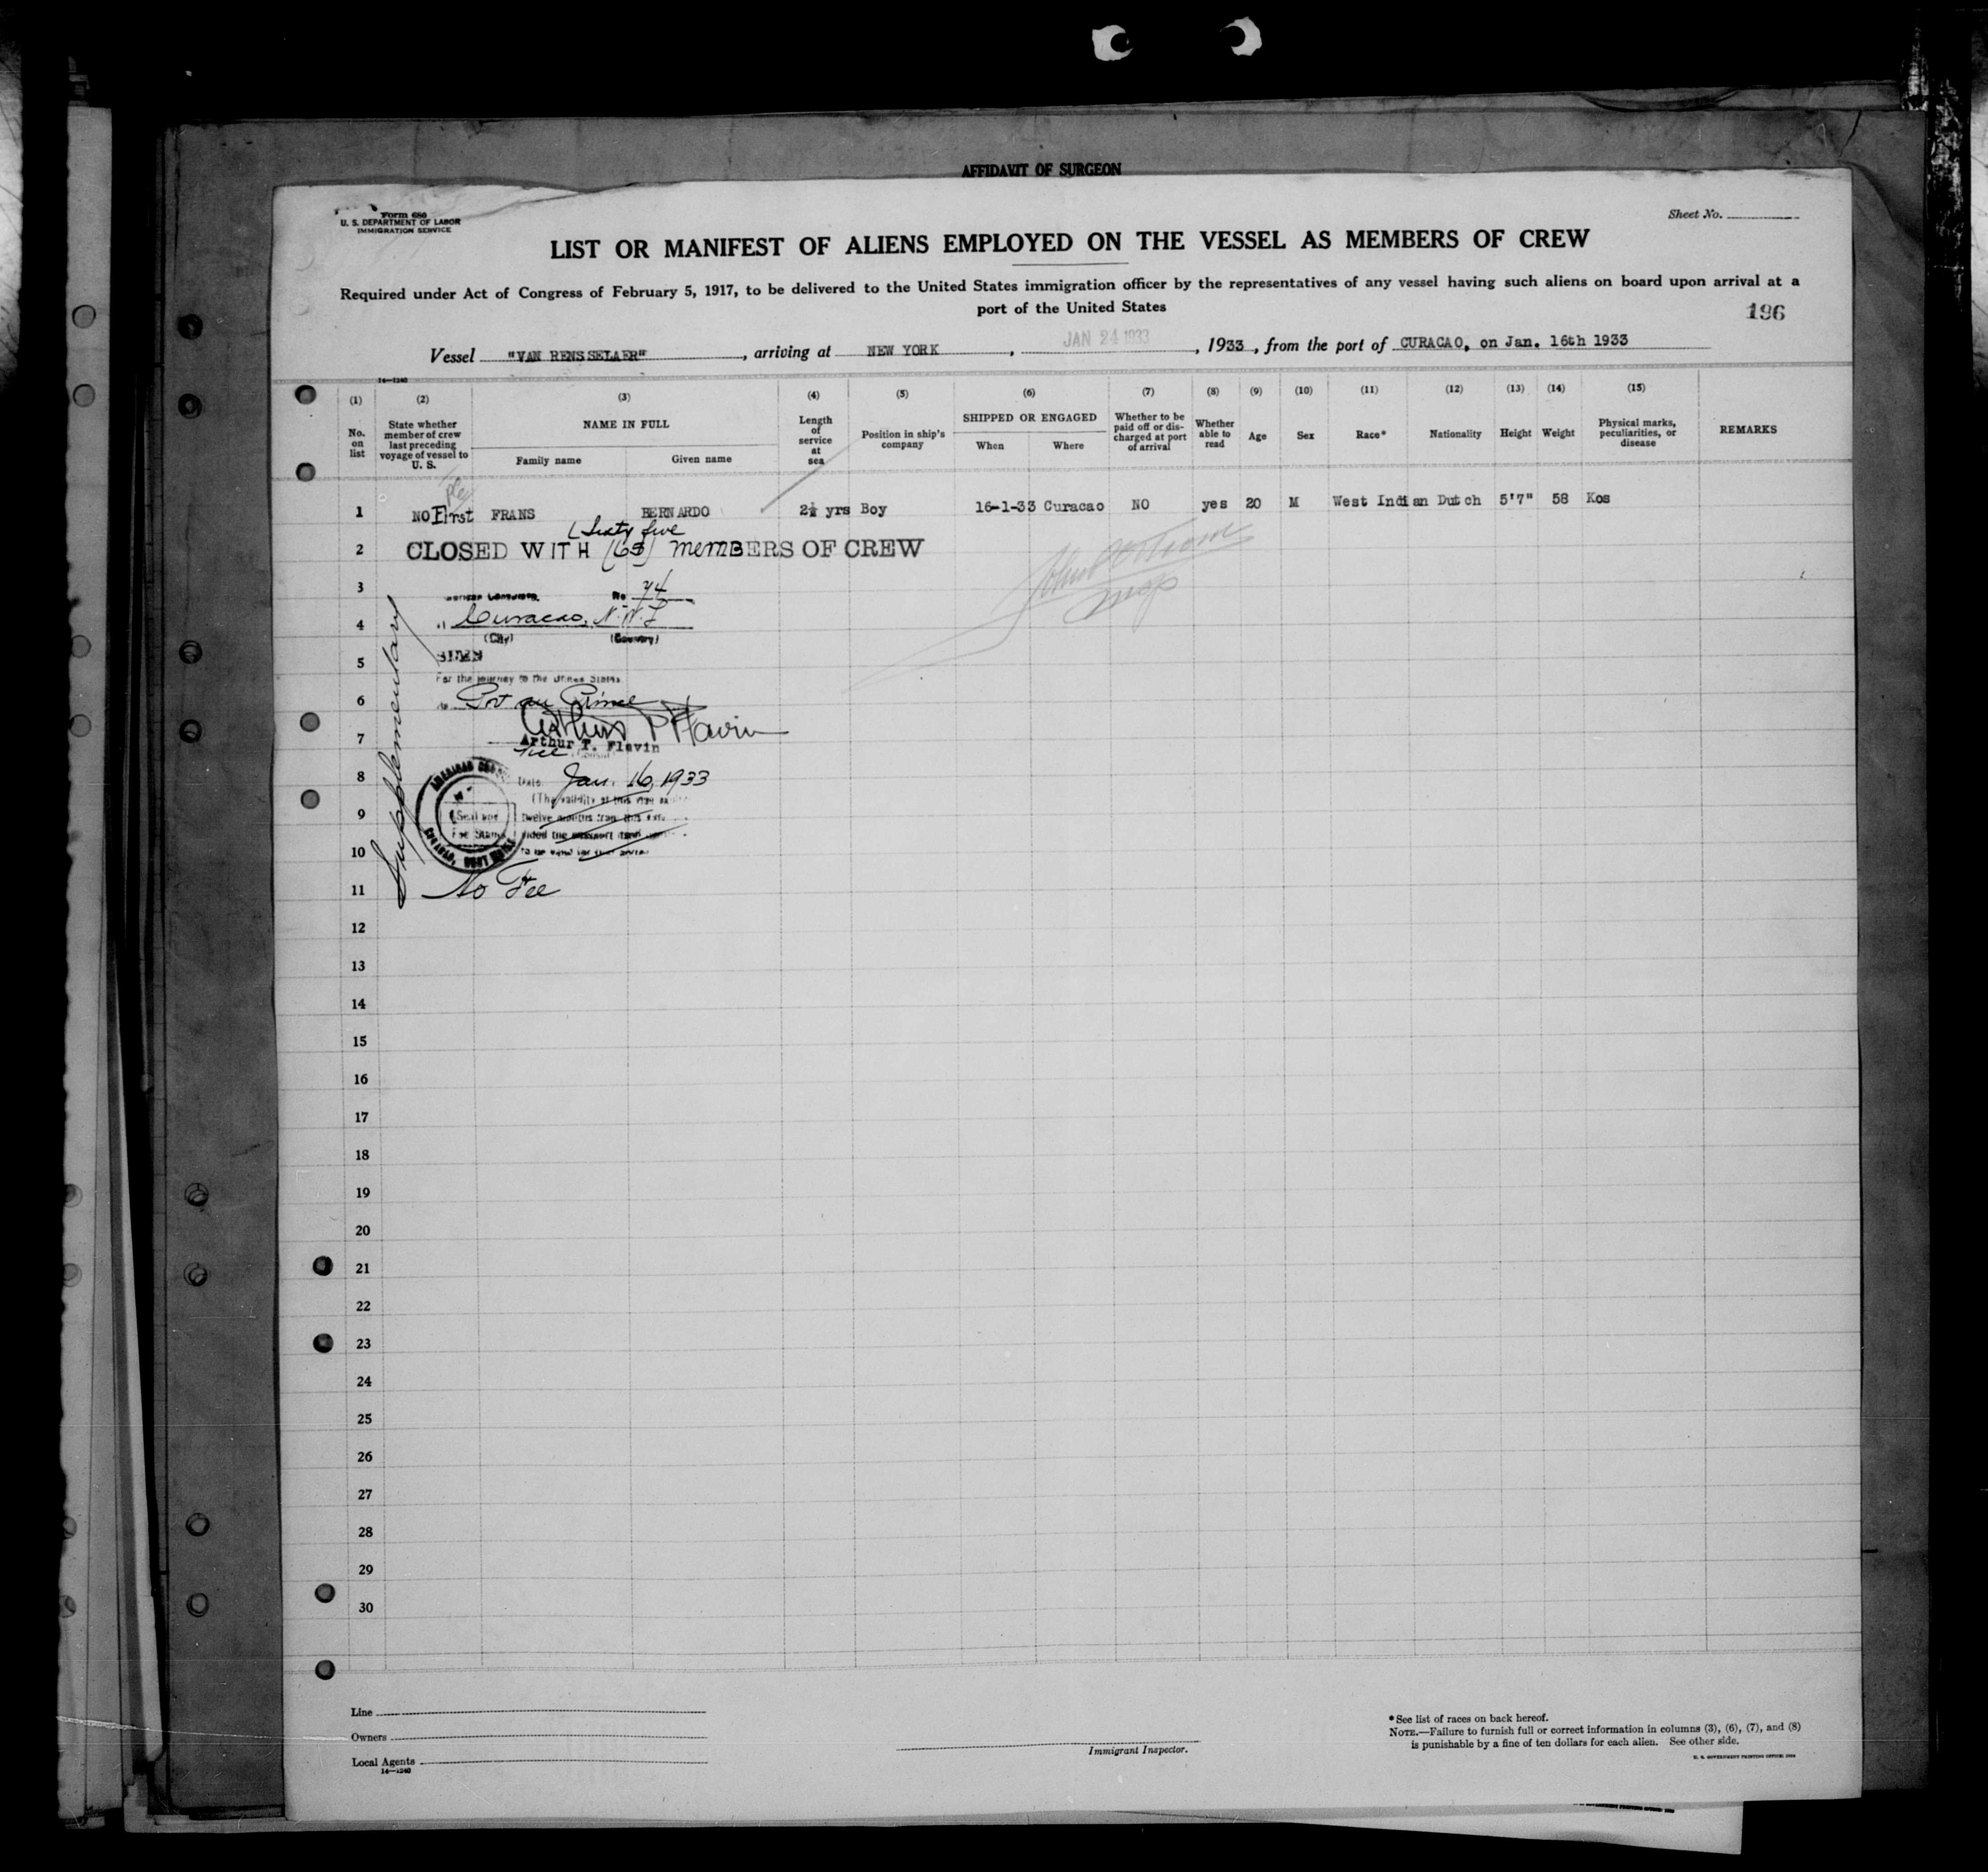 AFFIDAVIT OF SURGEON
Form 686
U. S. DEPARTMENT OF LABOR
IMMIGRATION SERVICE
Sheet No.
LIST OR MANIFEST OF ALIENS EMPLOYED ON THE VESSEL AS MEMBERS OF CREW
Required under Act of Congress of February 5, 1917, to be delivered to the United States immigration officer by the representatives of any vessel having such aliens on board upon arrival at a
port of the United States
196
Vessel "VAN RENSSELAER", arriving at NEW YORK, JAN 24 1933, 1933, from the port of CURACAO, on Jan. 16th 1933
14—1240
(1) (2) (3) (4) (5) (6) (7) (8) (9) (10) (11) (12) (13) (14) (15)
No. on list
State whether member of crew last preceding voyage of vessel to U. S.
NAME IN FULL
Family name Given name
Length of service at sea
Position in ship's company
SHIPPED OR ENGAGED
When Where
Whether to be paid off or discharged at port of arrival
Whether able to read
Age
Sex
Race*
Nationality
Height
Weight
Physical marks, peculiarities, or disease
REMARKS
1 NO First FRANS BERNARDO 2½ yrs Boy 16-1-33 Curacao NO yes 20 M West Indian Dutch 5'7" 58 Kos
Sixty five
2 CLOSED WITH (65) MEMBERS OF CREW
3 American Consulate No 74
4 Curacao, N.W.I.
(City) (Country)
5 SEEN
For the journey to the United States
6 Port au Prince
Arthur P Flavin
7 Arthur P. Flavin
Vice Consul
8 Date Jan. 16, 1933
(The validity of this visa
9 twelve months from this date
vided the passport
10 to be valid for that
Seal and
Fee Stamp
AMERICAN
CURACAO, WEST INDIES
11 No Fee
Supplementary
12
13
14
15
16
17
18
19
20
21
22
23
24
25
26
27
28
29
30
Line
Owners
Local Agents
14—1240
Immigrant Inspector.
*See list of races on back hereof.
NOTE.—Failure to furnish full or correct information in columns (3), (6), (7), and (8)
is punishable by a fine of ten dollars for each alien. See other side.
U. S. GOVERNMENT PRINTING OFFICE